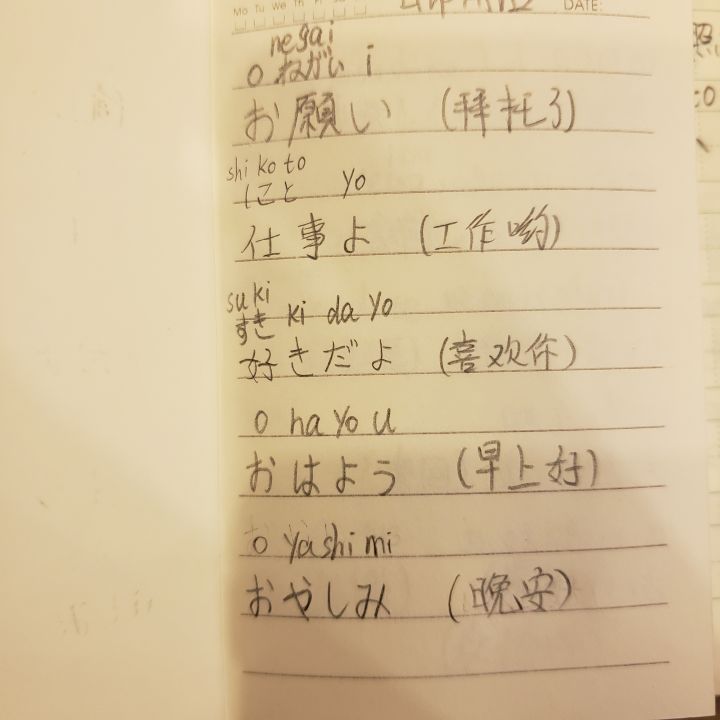 Mo Tu We Th Fr Sa Su DATE:
negai
o ねがい i
お願い (拜托了)
shi koto
しごと yo
仕事よ (工作哟)
suki
すき ki da yo
好きだよ (喜欢你)
o ha yo u
おはよう (早上好)
o yashi mi
おやしみ (晚安)
照